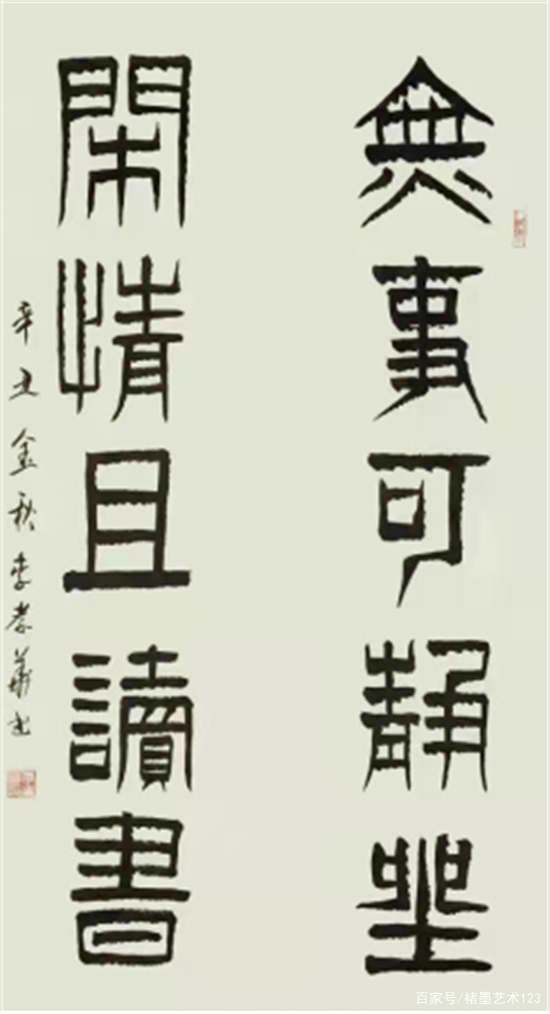 無事可静坐
閑情且讀書
辛丑金秋李孝華書
百家号/楮墨艺术123